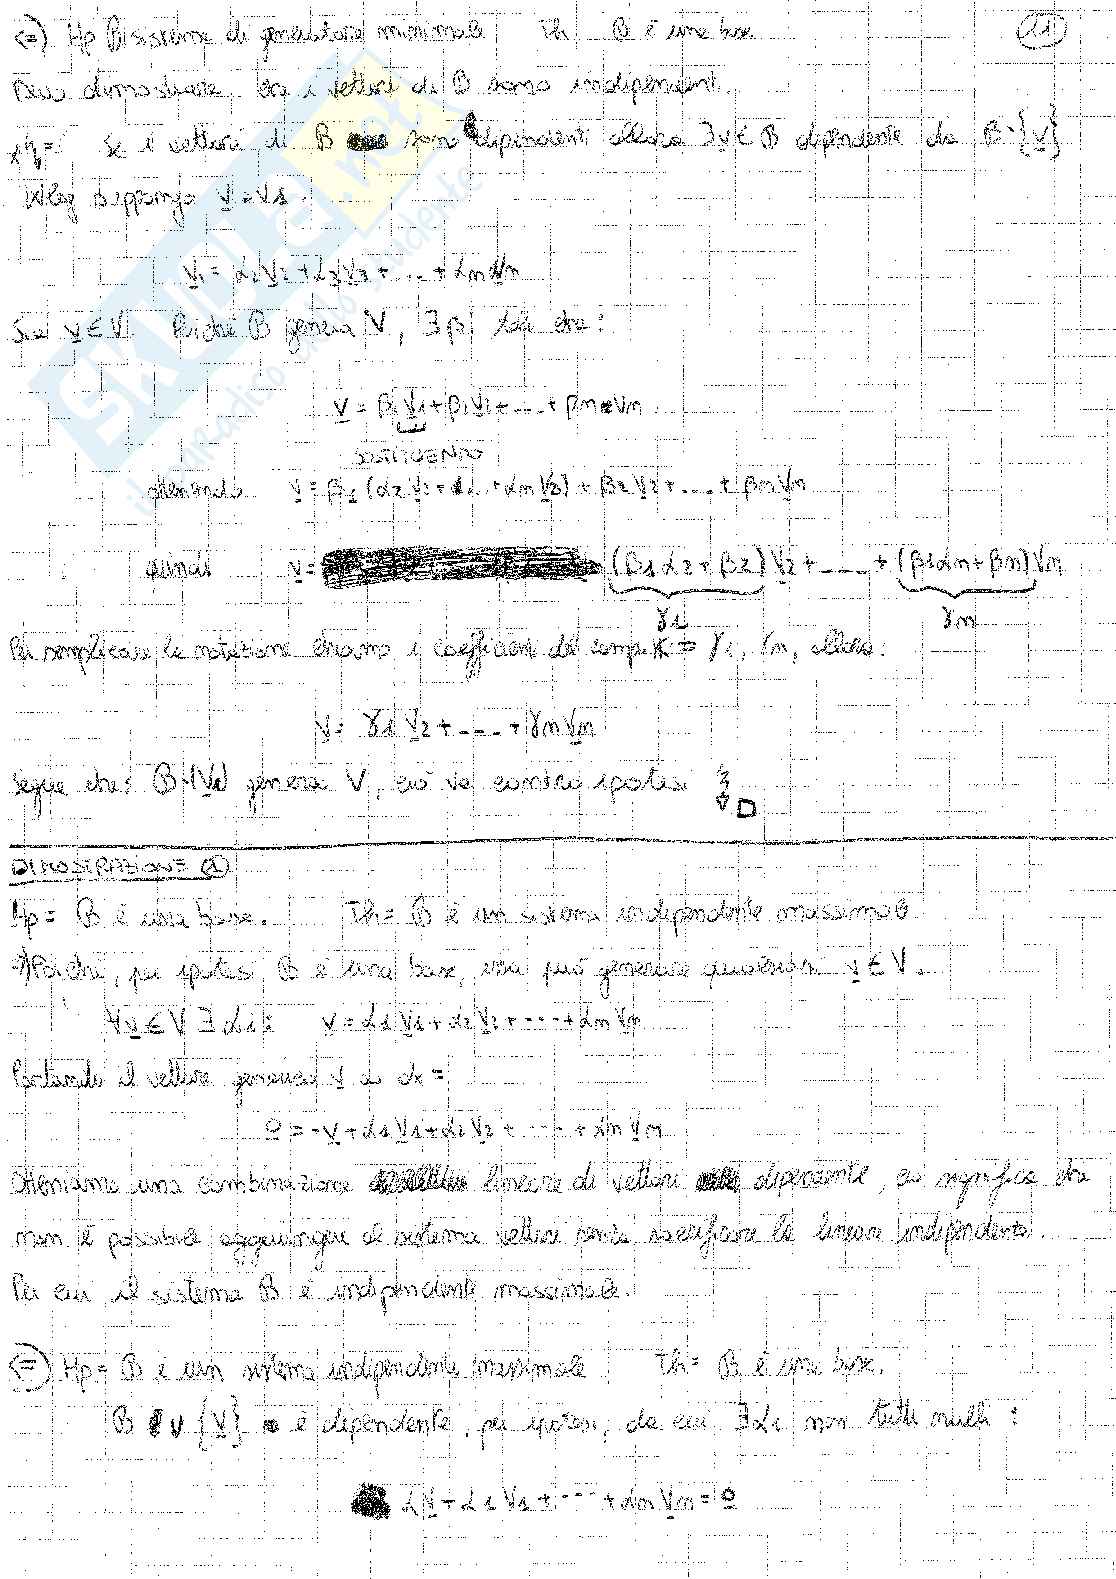 (⇐) Hp B sistema di generatori minimale Th B è una base 11
Devo dimostrare che i vettori di B sono indipendenti.
Se i vettori di B sono dipendenti allora ∃ v ∈ B dipendente da B-{v}
Wlog suppongo v = v1.
v1 = α2v2 + α3v3 + ... + αnvn
Sia v ∈ V. Poiché B genera V, ∃ βi tale che:
v = β1v1 + β2v2 + ... + βnvn
SOSTITUENDO
ottenendo v = β1 (α2v2 + ... + αnvn) + β2v2 + ... + βnvn
quindi v = (β1α2 + β2)v2 + ... + (β1αn + βn)vn
γ1 γn
Per semplificare la notazione chiamo i coefficienti γ1, γn, allora:
v = γ1v2 + ... + γnvn
Segue che: B-{v1} genera V, ciò va contro ipotesi □
DIMOSTRAZIONE (2)
Hp= B è una base. Th= B è un sistema indipendente massimale
⇒) Poiché, per ipotesi, B è una base, essa può generare qualsiasi v ∈ V.
∀v ∈ V ∃ αi : v = α1v1 + α2v2 + ... + αnvn
Portando il vettore generico v a dx =
0 = -v + α1v1 + α2v2 + ... + αnvn
Otteniamo una combinazione lineare di vettori dipendente, ciò significa che
non è possibile aggiungere al sistema vettori senza sacrificare la lineare indipendenza.
Per cui il sistema B è indipendente massimale.
(⇐) Hp= B è un sistema indipendente massimale Th= B è una base.
B ∪ {v} è dipendente, per ipotesi, da cui ∃ αi non tutti nulli :
αv + α1v1 + ... + αnvn = 0